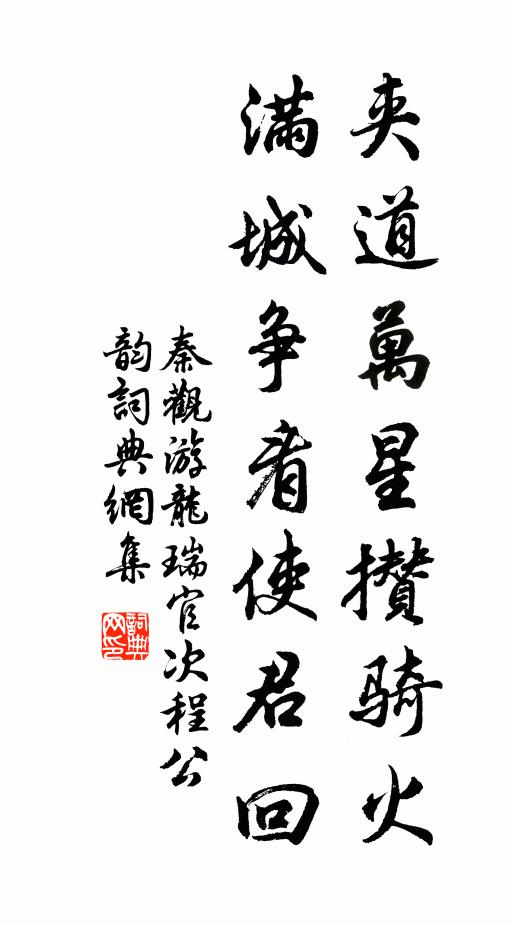 夹道萬星攢騎火
滿城争看使君回
秦觀游龍瑞宫次程公
韵詞典網集
詞典網印